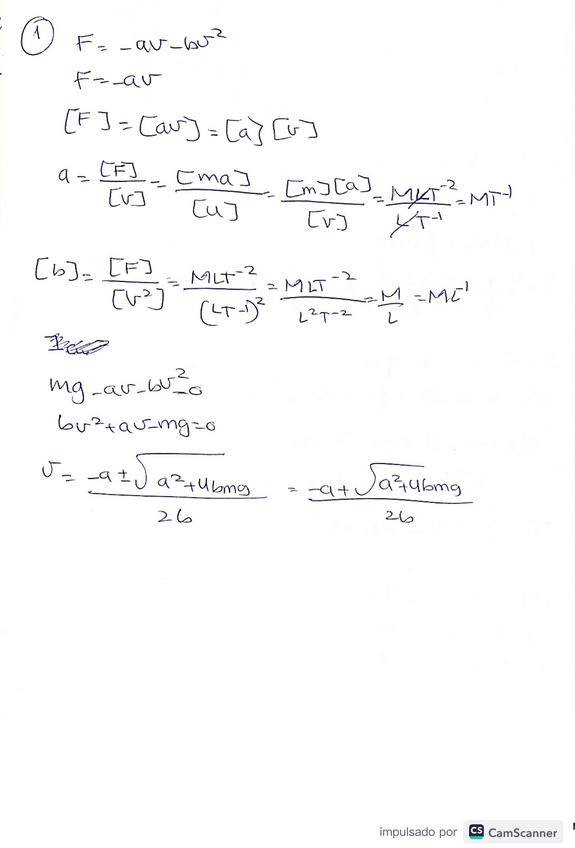 1
F = -av - bv²
F = -av
[F] = [av] = [a] [v]
a = [F]/[v] = [ma]/[v] = [m][a]/[v] = MLT⁻²/LT⁻¹ = MT⁻¹
[b] = [F]/[v²] = MLT⁻²/(LT⁻¹)² = MLT⁻²/L²T⁻² = M/L = ML⁻¹
mg - av - bv² = 0
bv² + av - mg = 0
v = (-a ± √(a² + 4bmg))/2b = (-a + √(a² + 4bmg))/2b
impulsado por CS CamScanner